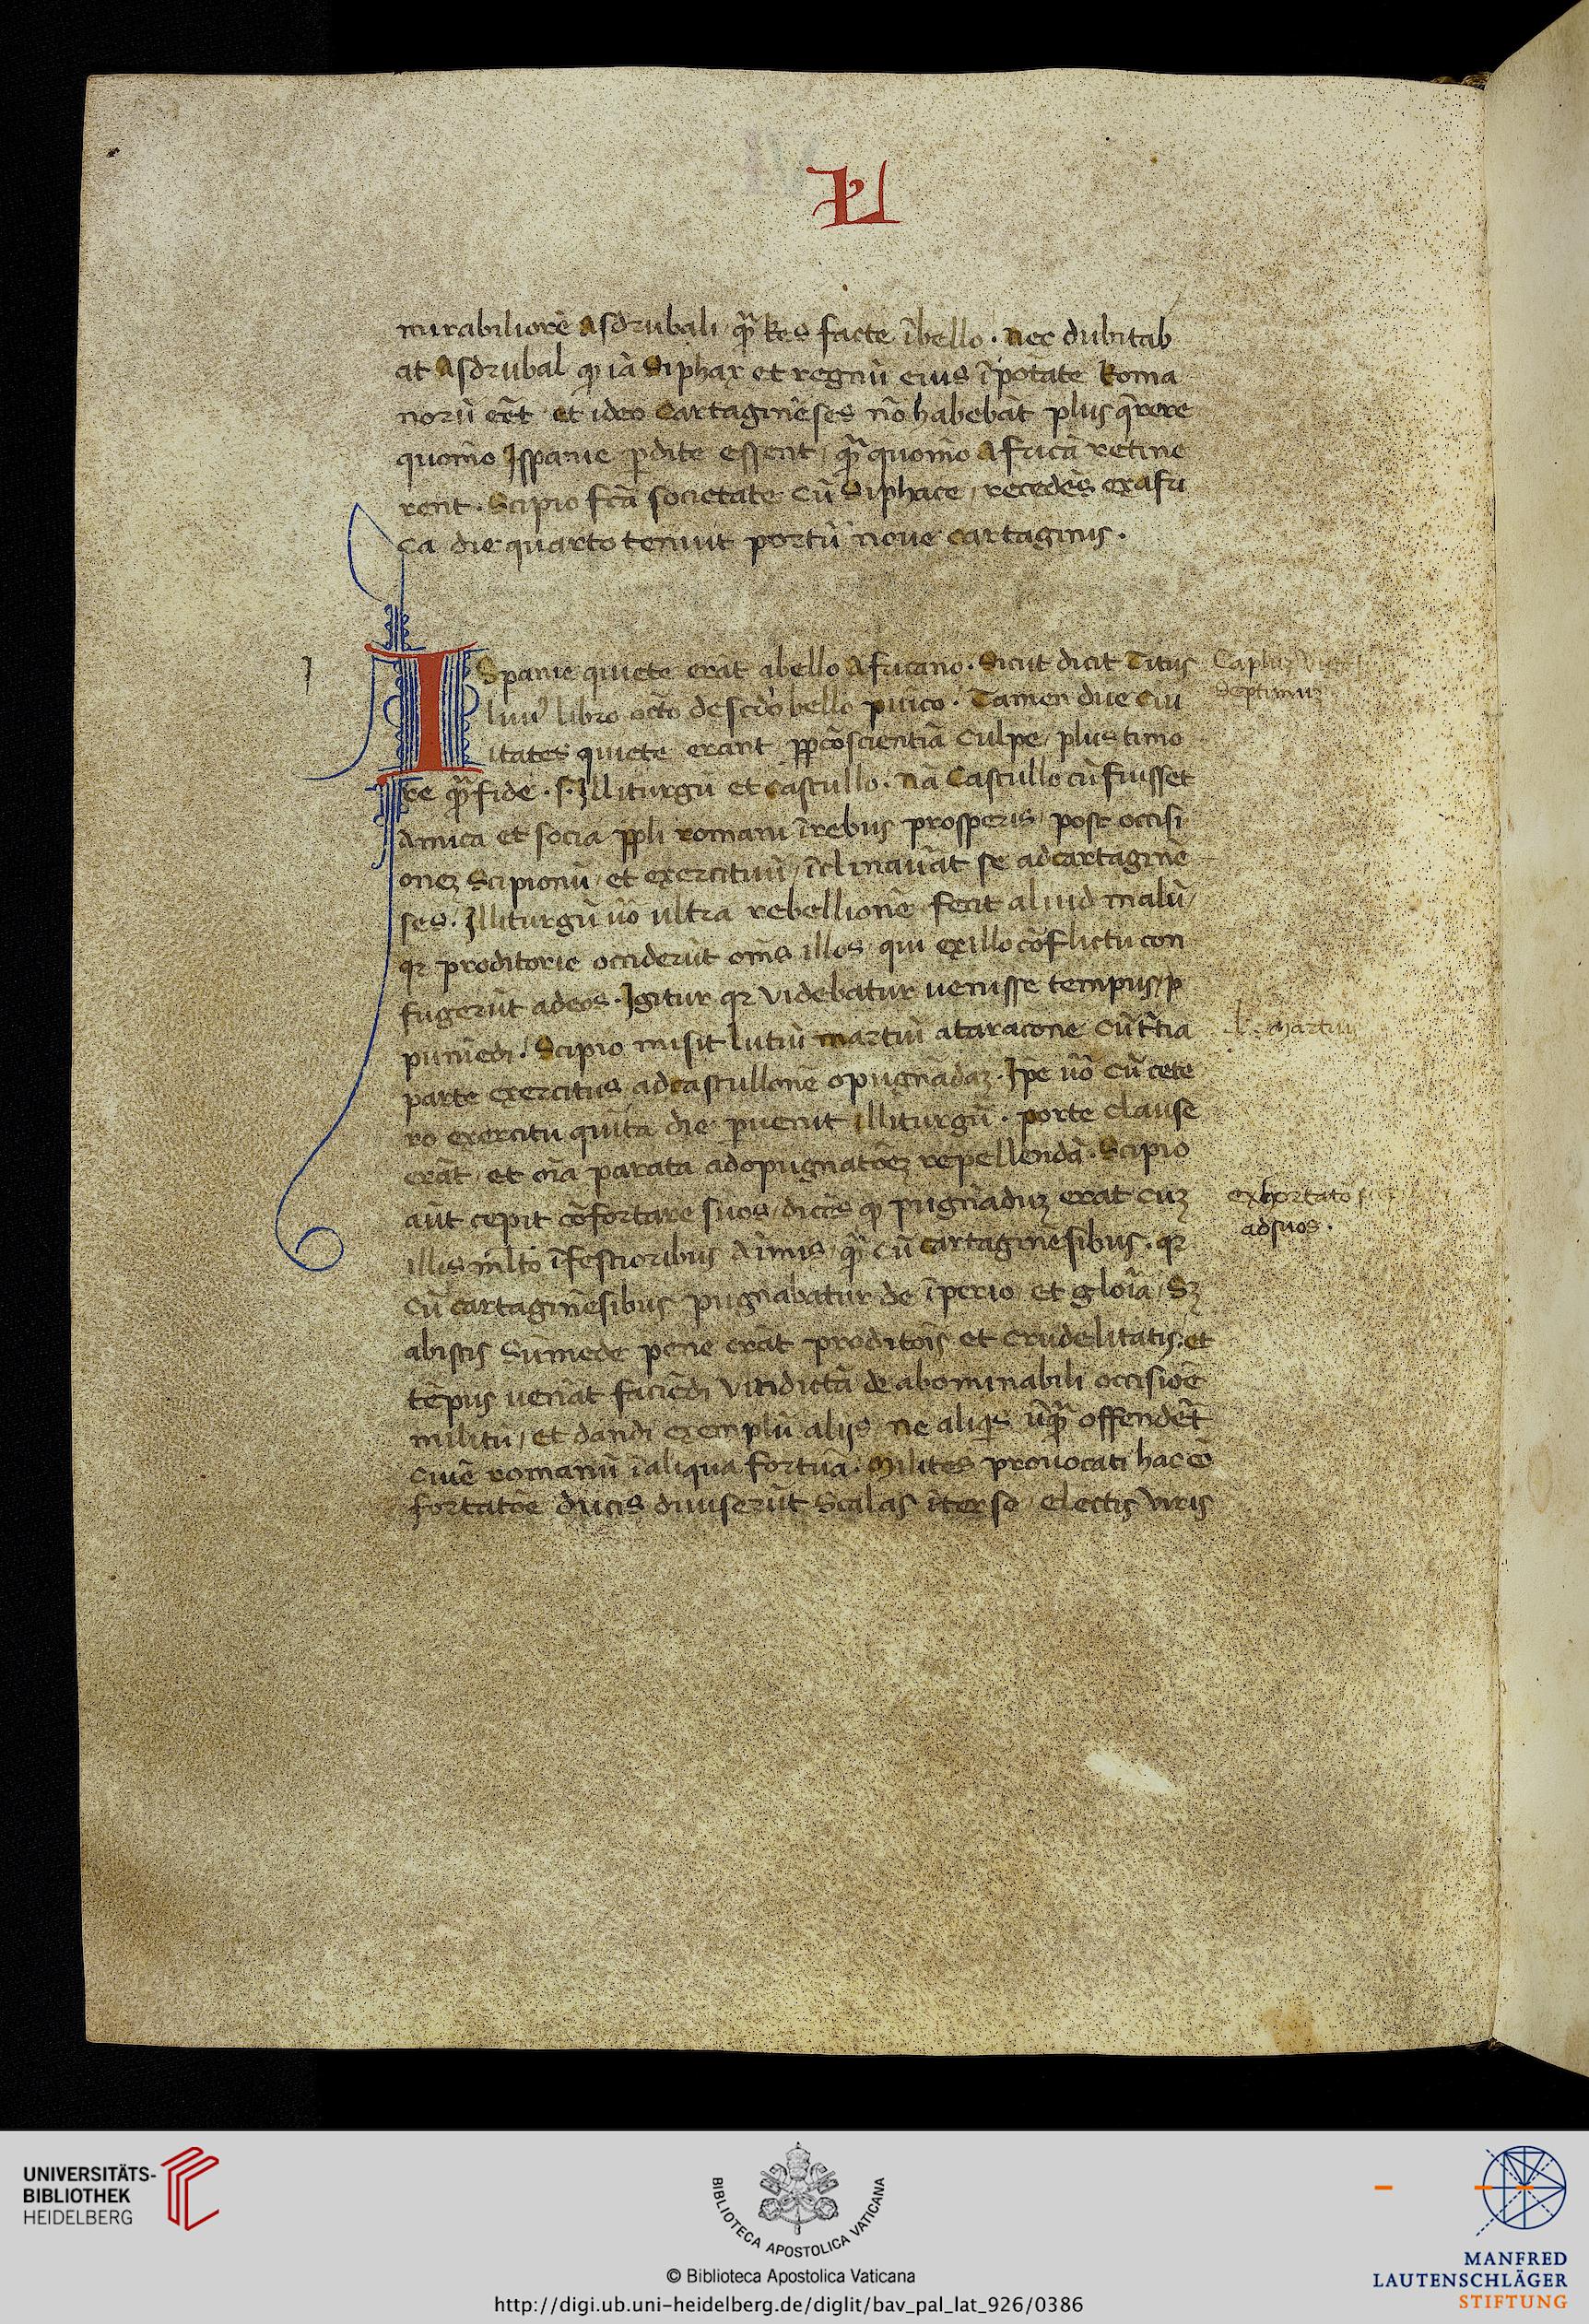 L
mirabiliorē Asdrubali / qꝫ̄ Res facte ī bello. nec dubitab
at Asdrubal qꝫ iā Siphax et regnū eius ī pōtate Roma
norū erāt / et ideo Cartaginēses nō habebāt plus q̄rere
quom̄o Ispanie ꝑdite essent / qꝫ̄ quom̄o Africā retine
rent. Scipio fc̄ā societate Cū Siphace / recedēs ex afri
Ca / die quarto tenuit portū noue Cartaginis.
ISpanie quiete erāt a bello Africano. Sicut dicit Titus
liuiꝰ libro octō de scd̄o bello puico. Tamen due Ciu
itates quiete erant ꝓpͨ cōscientiā Culpe / plus timo
re qꝫ̄ fide. s. Illiturgū et Castullo. nā Castullo cū fuisset
Amica et socia ꝓpli romani ī rebus prosperis / post occisi
oneꝫ Scipionū / et exercituū / īclinauāt se ad cartaginē
ses. Illiturgū u̇o ultra rebellionē fecit aliud malū /
qꝛ proditorie occiderūt om̄s illos / qui ex illo cōflictu con
fugerūt ad eos. Igitur qꝛ videbatur uenisse tempus / p
puniēdi. Scipio misit lutiū martiū a taracone Cū t̄tia
parte exercitus ad castullonē opugnādaꝫ. Ip̄e u̇o Cū cete
ro exercitu quīta die ꝑuenit illiturgū. porte clause
erāt / et oīa parata ad opugnatōeꝫ repellendā. Scipio
aūt cepit cōfortare suos / dicēs qꝫ pugnāduꝫ erat cuꝫ
illis ml̄to īfestioribus Aīmis / qꝫ̄ Cū Cartaginēsibus. qꝛ
Cū Cartaginēsibus pugnabatur de īperio / et gloīa / Sꝫ
ab istis Sumēde pene erāt proditōis et Crudelitatis. et
tēpus ueniāt faciēdi Vīdictā de abominabili occisiōe
militū / et dandi exemplū aliis / ne aliqͥs ūqꝫ̄ offendēt
Ciuē romanū ī aliqua fortūa. Milites prouocati hac cō
fortatōe ducis diuiserūt Scalas īter se / electis Viris
Capl̄uꝫ
Septimuꝫ
l. martiu
exhortatō
ad suos.
UNIVERSITÄTS-
BIBLIOTHEK
HEIDELBERG
BIBLIOTECA APOSTOLICA VATICANA
© Biblioteca Apostolica Vaticana
http://digi.ub.uni-heidelberg.de/diglit/bav_pal_lat_926/0386
MANFRED
LAUTENSCHLÄGER
STIFTUNG